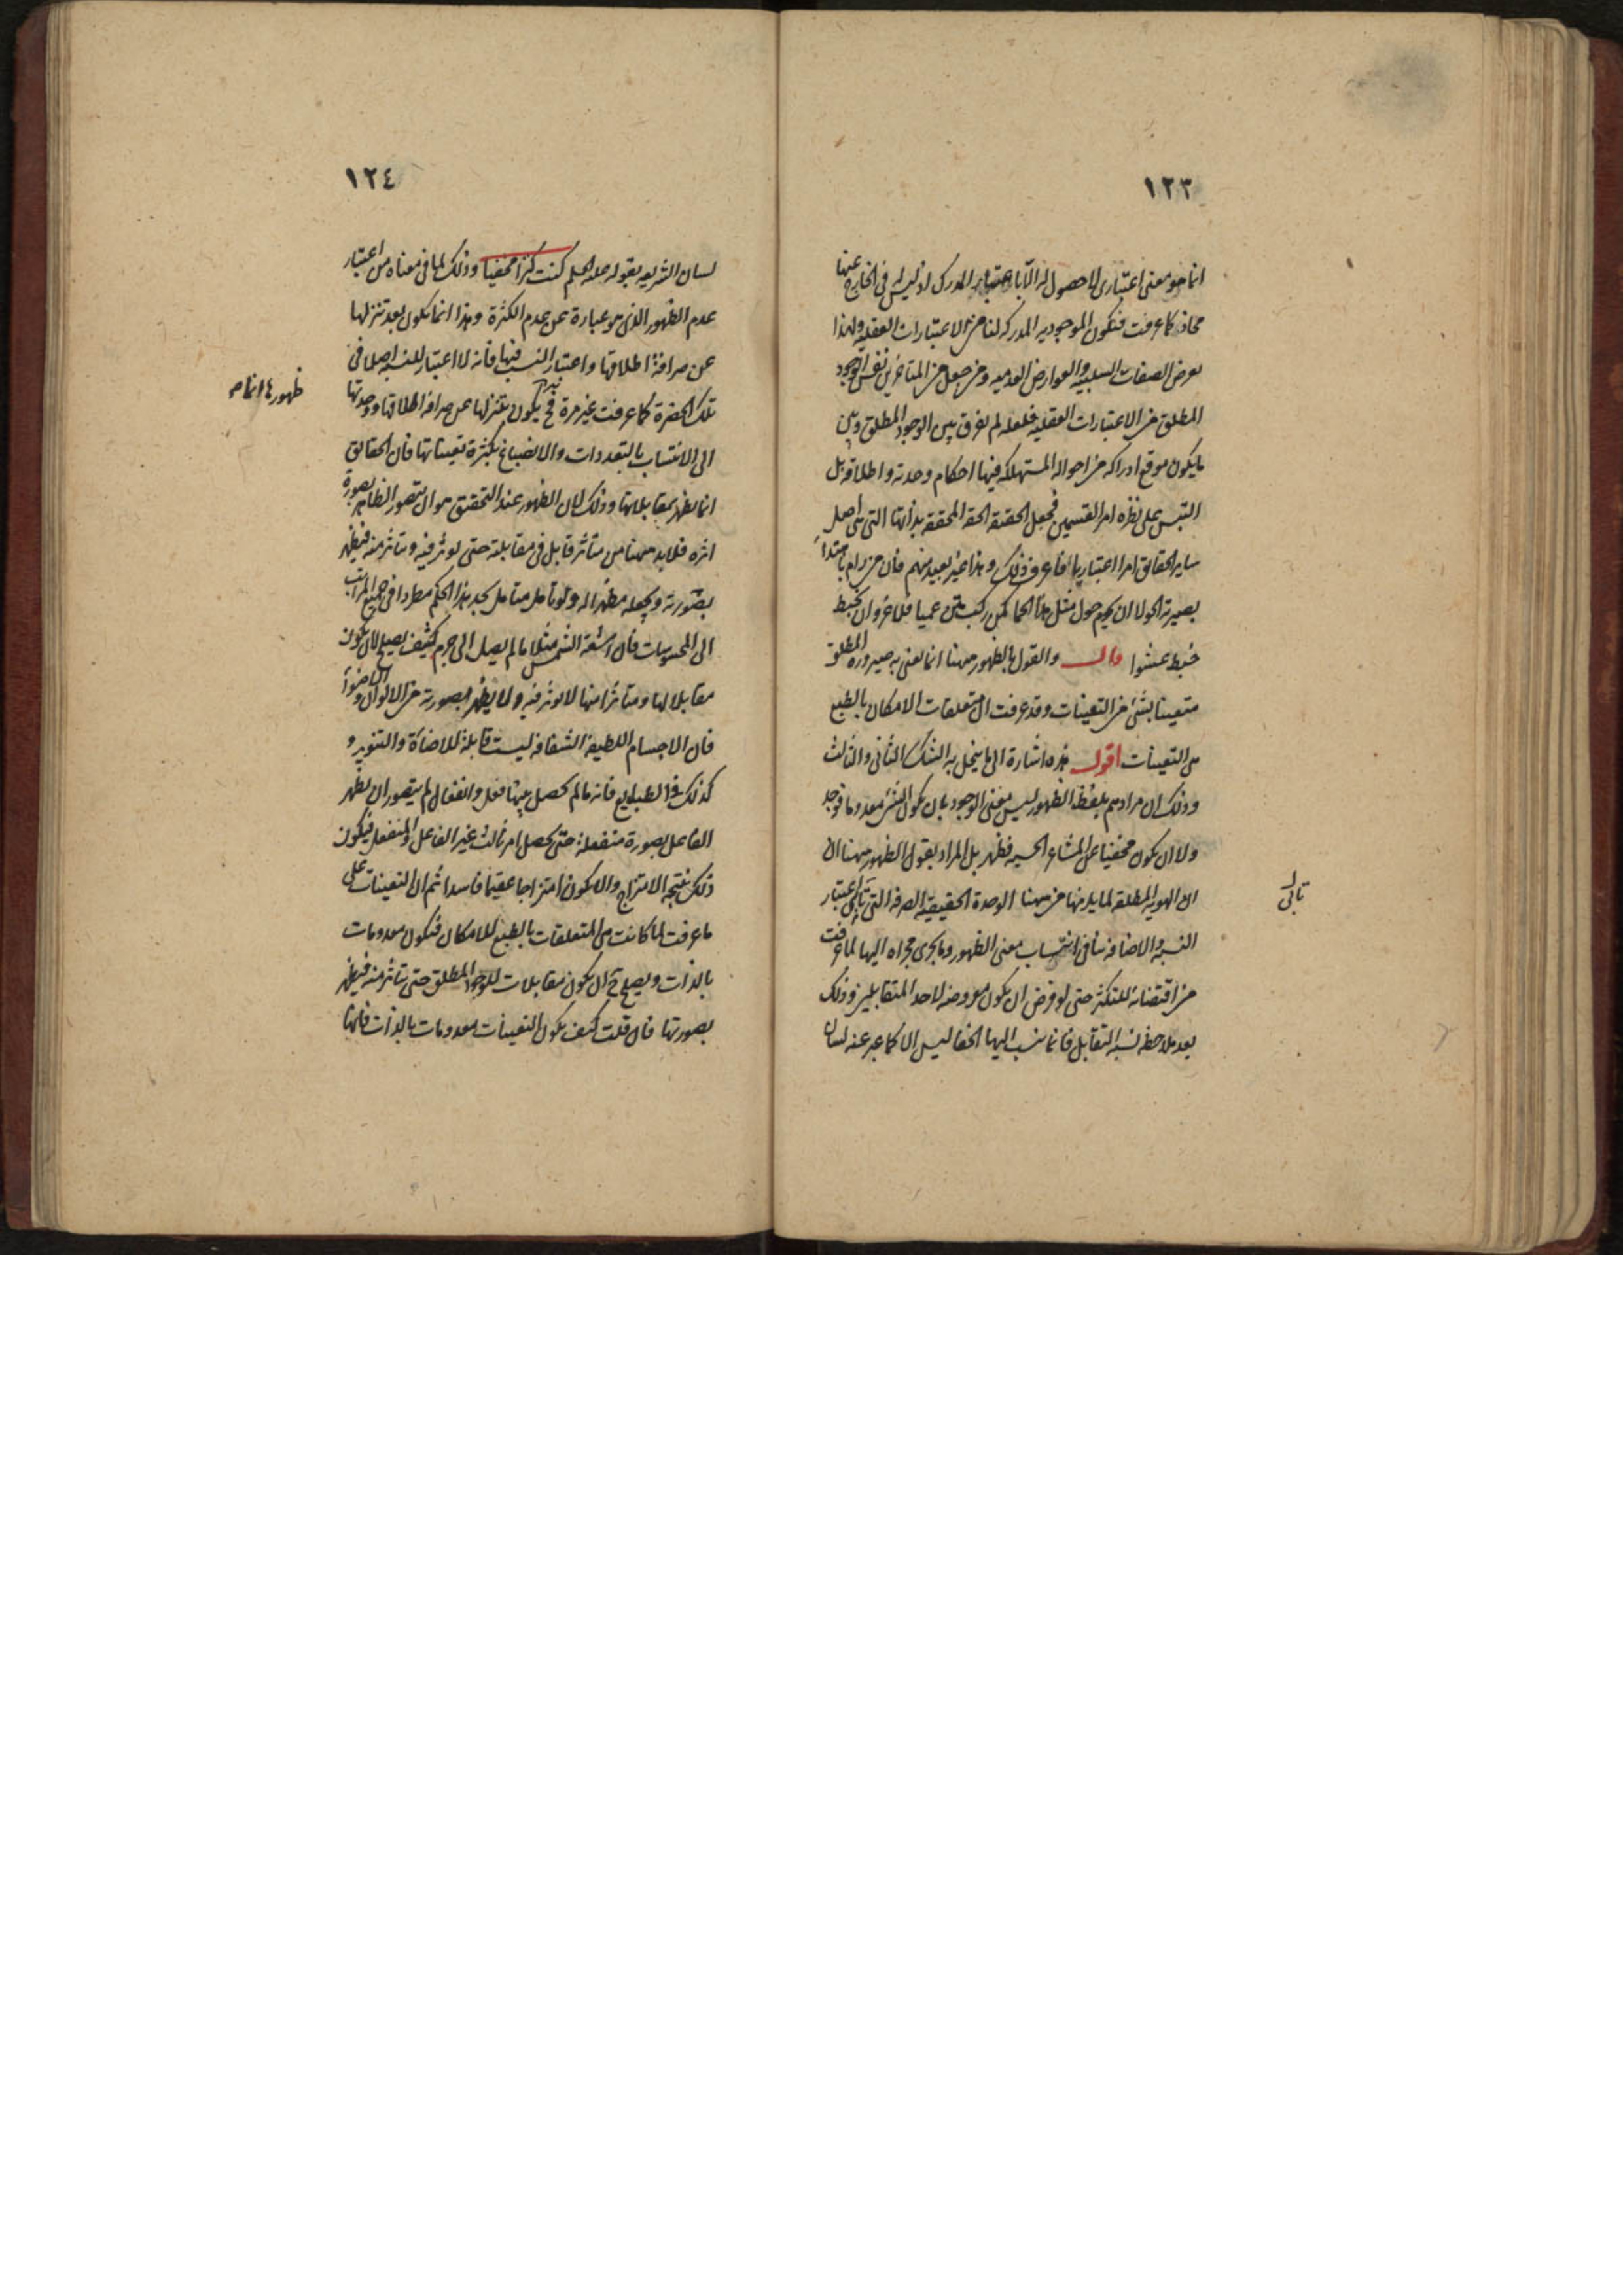 ١٢٣
انما هو معنى اعتبارى لا حصول له الا باعتبار المدرك اذ ليس فى الخارج عنها
محاذ كما عرفت فيكون الموجوديه المدركه لنا من الاعتبارات العقليه ولهذا
يعرض الصفات السلبيه والعوارض العدميه ومن جعل من المتأخرين نفس الوجود
المطلق من الاعتبارات العقليه فلعله لم يفرق بين الوجود المطلق وبين
ما يكون موقع ادراكه من احواله المستهلكه فيها احكام وحدته واطلاقه بل
التبس على نظره امر القسمين فجعل الحقيقه الحقه المحققه بذاتها التى هى اصل
ساير الحقايق امرا اعتباريا فاعرف ذلك وهذا غير بعيد منهم فان من رام
بصيرته الحولا ان يحوم حول مثل هذا الحما كمن ركب متن عميا فلا غرو ان يخبط
خبط عشوا قال والقول بالظهور ههنا انما يعنى به صيروره المطلق
متعينا بشئ من التعينات وقد عرفت ان متعلقات الامكان بالطبع
هى التعينات اقول هذه اشارة الى ما ينحل به الشك الثانى والثالث
وذلك ان مرادهم بلفظه الظهور ليس معنى الوجود بان يكون الشئ معدوما فوجد
ولا ان يكون مخفيا عن المشاعر الحسيه فظهر بل المراد بقول الظهور ههنا ان
ان الهويه المطلقه لما يلزمها من ههنا الوحدة الحقيقيه الصرفه التى تأبى اعتبار
تابى
النسبه والاضافه ينافى انتساب معنى الظهور وما يجرى مجراه اليها لما عرفت
من اقتضائه للتكثر حتى لو فرض ان يكون معروضه لاحد المتقابلين وذلك
بعد ملاحظه نسبه التقابل فانما ينسب اليها الخفا ليس الا كما عبر عنه لسان
١٢٤
لسان الشريعه بقوله عليه السلم كنت كنزا مخفيا وذلك لما فى معناه من اعتبار
عدم الظهور الذى هو عبارة عن عدم الكثرة وهذا انما يكون بعد تنزلها
عن صرافة اطلاقها واعتبار النسب فيها فانه لا اعتبار للنسبه اصلا فى
تلك الحضرة كما عرفت غير مرة فح يكون بتنزلها عن صرافة اطلاقها ووحدتها
ظهورها انما هو
الى الانتساب بالتعددات والانصباغ بكثرة تعيناتها فان الحقايق
انما يظهر بمقابلاتها وذلك لان الظهور عند التحقيق هو ان يتصور الظاهر بصورة
اثره فلا بد ههنا من متأثر قابل فى مقابلته حتى يوثر فيه ويتأثر منه فيظهر
بصورته ويجعله مظهرا له ولو تأمل متأمل يجد هذا الحكم مطردا فى جميع المراتب
الى المحسوسات فان اشعة الشمس مثلا ما لم يصل الى جرم كثيف يصلح لان يكون
مقابلا لها ومتأثرا منها لا يوثر فيه ولا يظهر بصورته من الالوان والاضواء
فان الاجسام اللطيفه الشفافه ليست قابلة للاضاءة والتنوير و
كذلك فى الطبايع فانه ما لم يحصل بينها فعل وانفعال لم يتصور ان يظهر
الفاعل بصورة منفعله حتى يحصل امر ثالث غير الفاعل والمنفعل فيكون
ذلك نتيجه الامتزاج والا يكون امتزاجا عقيما فاسدا ثم ان التعينات على
ما عرفت لما كانت هى المتعلقات بالطبع للامكان فيكون معدومات
بالذات ويصلح ح ان يكون مقابلات للوجود المطلق حتى يتأثر منه فيظهر
بصورتها فان قلت كيف يكون التعينات معدومات بالذات فانها